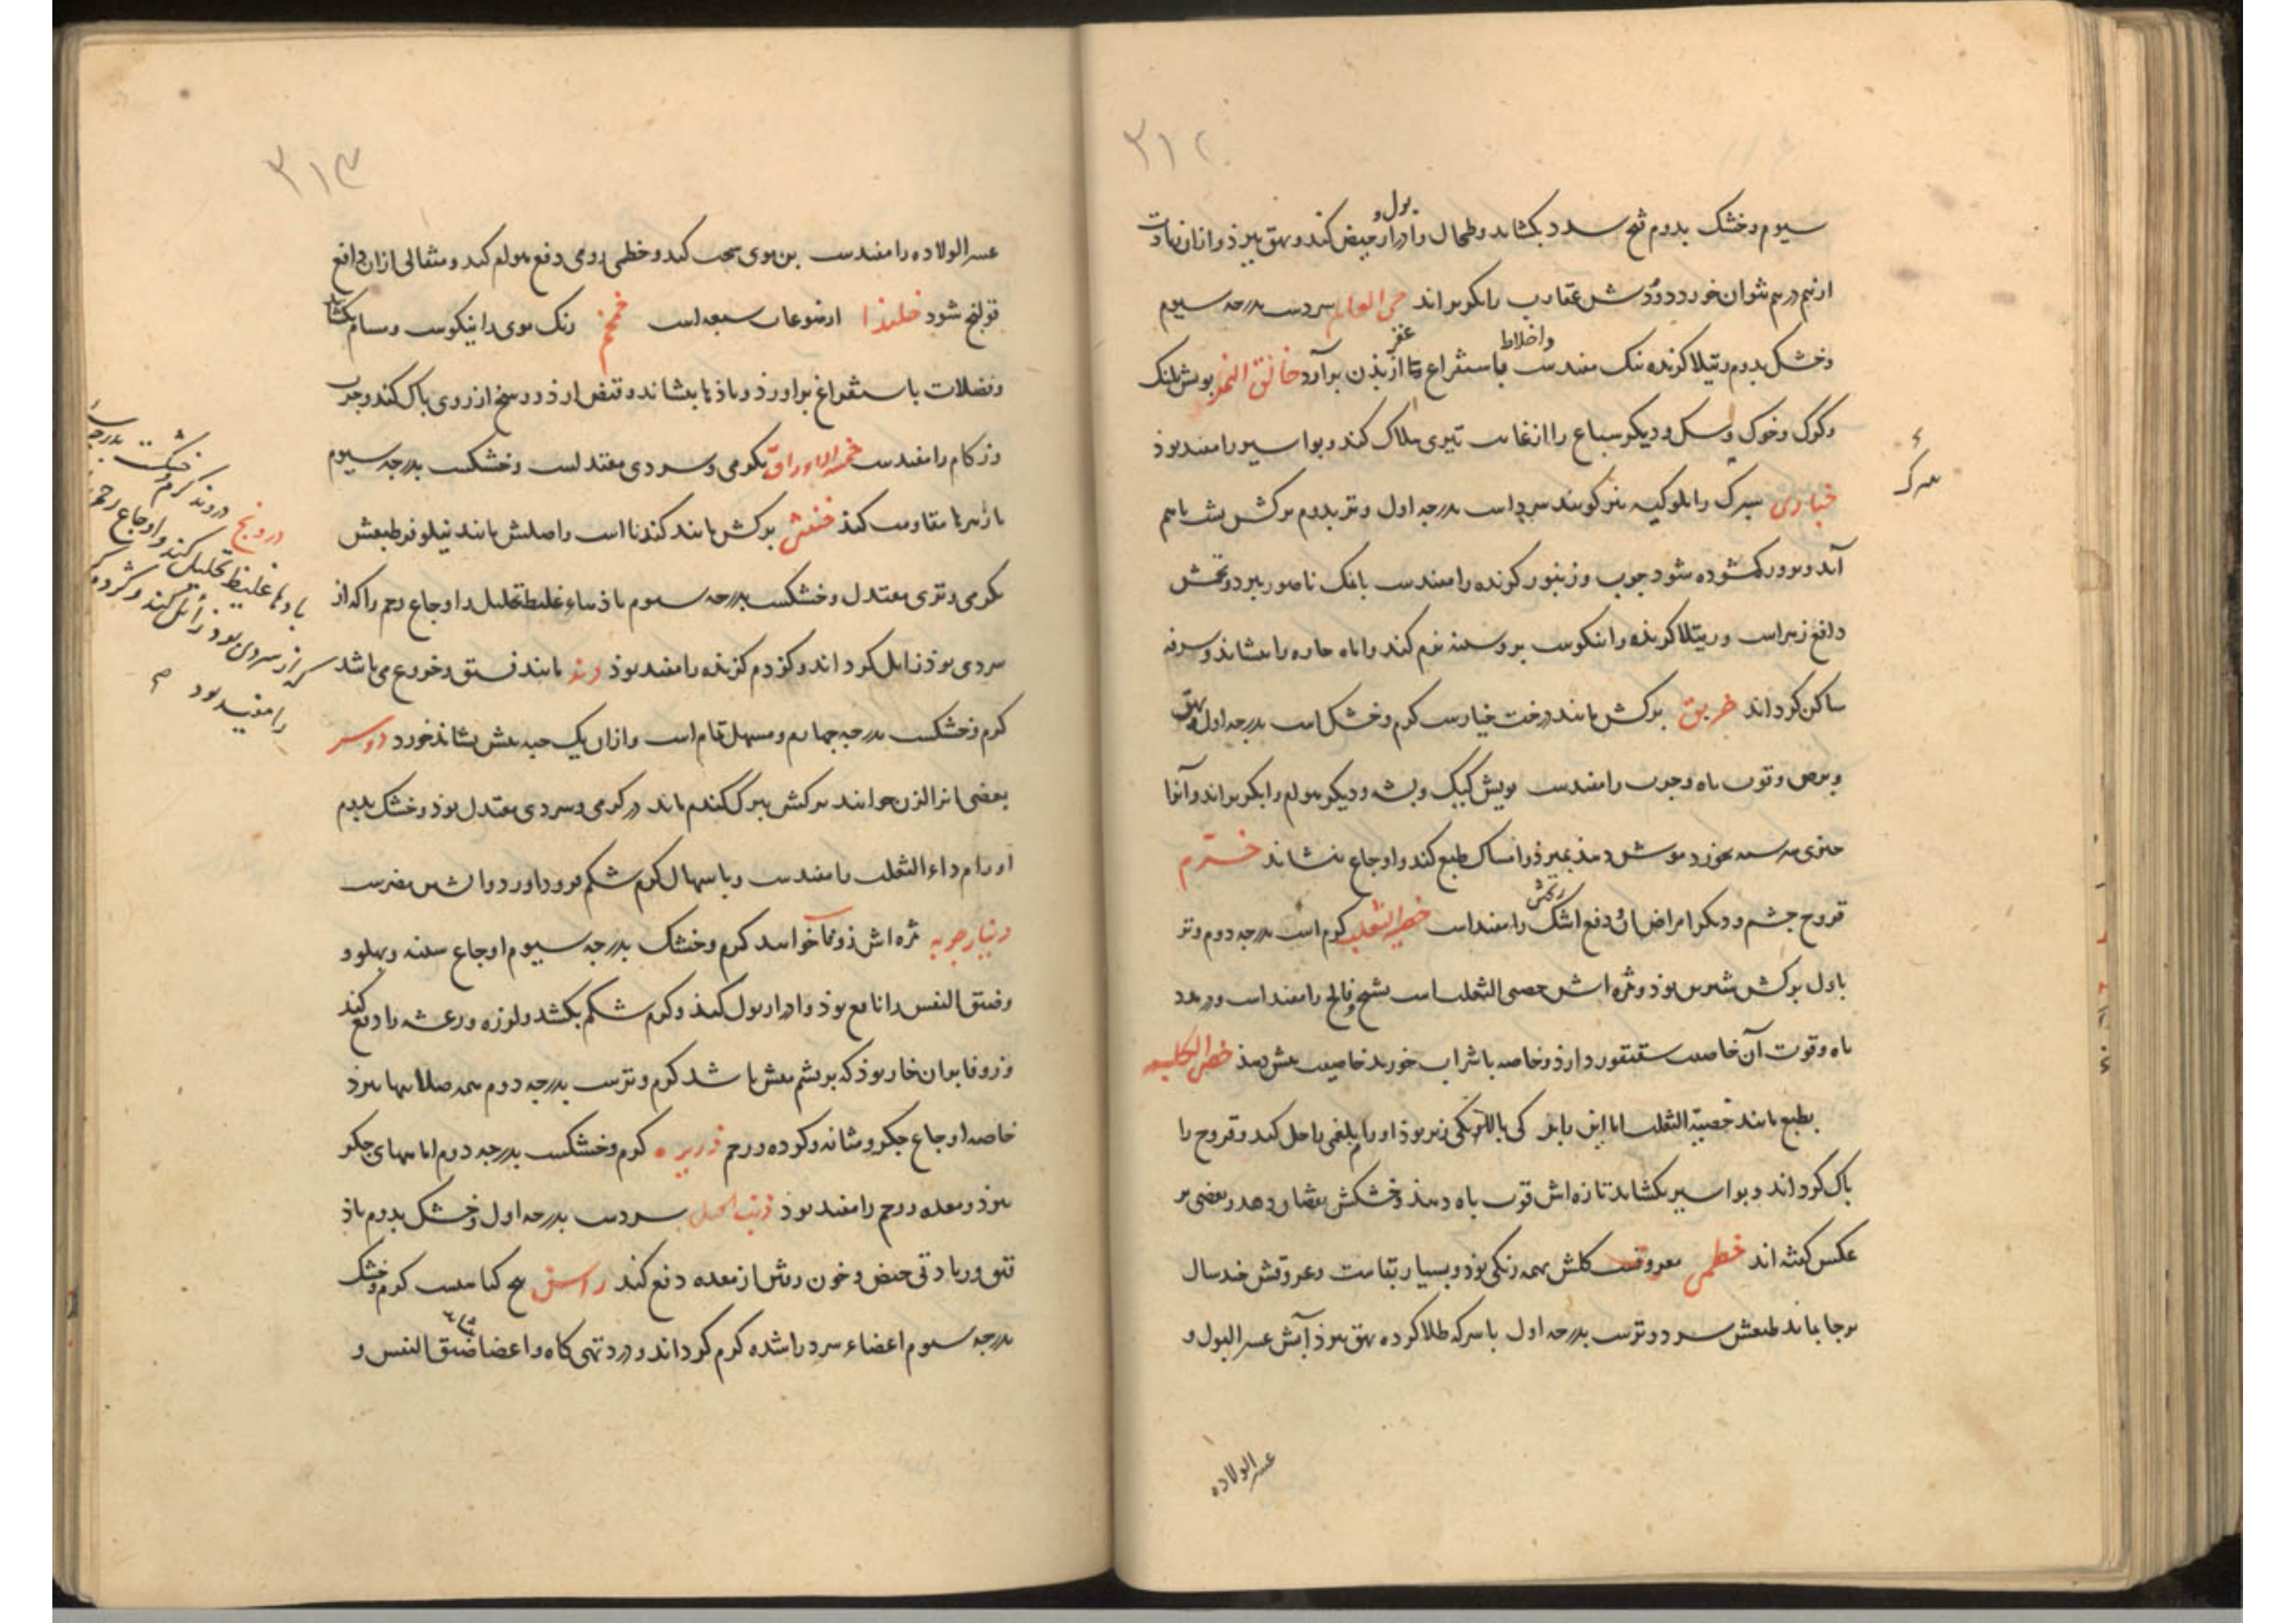 ٣١٢
سیوم و خشک بدوم قح سدد بکشاید و طحال و ادرار بول و حیض کند و بهق ببرد و ازان زیادت
از نیم درم نتوان خورد و دودش عقارب را بکریزاند حی العالم سردست بدرجه سیوم
و خشک بدوم رتیلا کزنده نیک مفیدست باستفراغ و اخلاط عفن از بدن برآرد خانق النمر بویش پلنک
و کرک و خوک و سک و دیکر سباع را از غایت تیزی هلاک کند و بواسیر را مفید بوذ
خبازی سیرک را ملوکیه نیز کویند سردست بدرجه اول و تر بدوم برکش بشب باهم
آید و بروز کشوده شود جرب و زنبور کزنده را مفیدست با نمک ناصور ببرد و تخمش
دافع زهراست و رتیلا کزنده را نیکوست بر و سینه نرم کند و اماه حاره را بنشاند و سرفه
ساکن کرداند خربق برکش مانند درخت خیارست کرم و خشک است بدرجه اول و بهق
و برص و قوت باه و جرب را مفیدست بویش کیک و پشه و دیکر هوام را بکریزاند و آنرا
بخورد موش دهند بمیرد و امساک طبع کند و اوجاع بنشاند خترم
قروح چشم و دیکر امراض آن و دفع اشک ریختن را مفید است خصی الثعلب کرم است بدرجه دوم و تر
باول برکش شیرین بوذ و ثمره اش خصی الثعلب است تشنج و فالج را مفید است و در مدد
باه و قوت آن خاصیت سقنقور دارد و خاصه با شراب خورند خاصیت بیش دهد خصی الکلب
بطبع مانند خصیة الثعلب اما این یکی بالا و یکی زیر بوذ اورام بلغمی را حل کند و قروح را
پاک کرداند و بواسیر بکشاید تازه اش قوت باه دهد و خشکش نقصان دهد و بعضی بر
عکس کفته اند خطمی معروفست کلش بهمه رنکی بوذ و بسیار بقا نیست و عروقش چند سال
برجا بماند طبعش سرد و ترست بدرجه اول با سرکه طلا کرده بهق ببرد آبش عسر البول و
عسر الولاده
٣١٣
عسر الولاده را مفیدست بن موی سخت کند و خطمی رومی دفع هوام کند و مثقالی ازان دافع
قولنج شود خلندا از نوعات سبعه است خمخم رنک موی را نیکوست و مسام بکشاید
و فضلات باستفراغ براورد و باذها بنشاند و قبض ارذ و وسخ از روی پاک کند و جرب
و زکام را مفیدست خمسة الاوراق بکرمی و سردی معتدلست و خشکست بدرجه سیوم
با زهرها مقاومت کند خنثی برکش مانند کندنا است و اصلش مانند نیلوفر طبعش
بکرمی و تری معتدل و خشکست بدرجه سیوم باذهاء غلیظ تحلیل و اوجاع رحم را که از
سردی بوذ زایل کرداند و کژدم کزنده را مفید بوذ دند مانند فستق و خروع می باشد
کرم و خشکست بدرجه چهارم و مسهل تمام است و ازان یک حبه بیش نشاید خورد دوسر
بعضی انرا الزن خوانند برکش ببرک کندم ماند در کرمی و سردی معتدل بوذ و خشک بدوم
اورام داء الثعلب را مفیدست و باسهال کرم شکم فرود اورد
ثمره اش ذونما خوانند کرم و خشک بدرجه سیوم اوجاع سینه و پهلو و
و ضیق النفس را نافع بوذ و ادرار بول کند و کرم شکم بکشد و لرزه و رعشه را دفع کند
و زوفا بران خار بوذ که بریشم بیش باشد کرم و ترست بدرجه دوم همه صلابتها ببرد
خاصه اوجاع جکر و مثانه و کرده و رحم ذریره کرم و خشکست بدرجه دوم اماسهای جکر
ببرد و معده و رحم را مفید بوذ ذنب الخیل سردست بدرجه اول و خشک بدوم باذ
فتق و زیادتی حیض و خون و ریش از معده دفع کند راسن بیخ کیاهیست کرم و خشک
بدرجه سیوم اعضاء سرد را شده کرم کرداند و درد تهی کاه و اعضا ضیق النفس و
درونج
دروند کرم و خشکست بدرجه
بادهاء غلیظ تحلیل کند و اوجاع رحم
که از سردی بود زائل کند و کژدم
را مفید بود صح